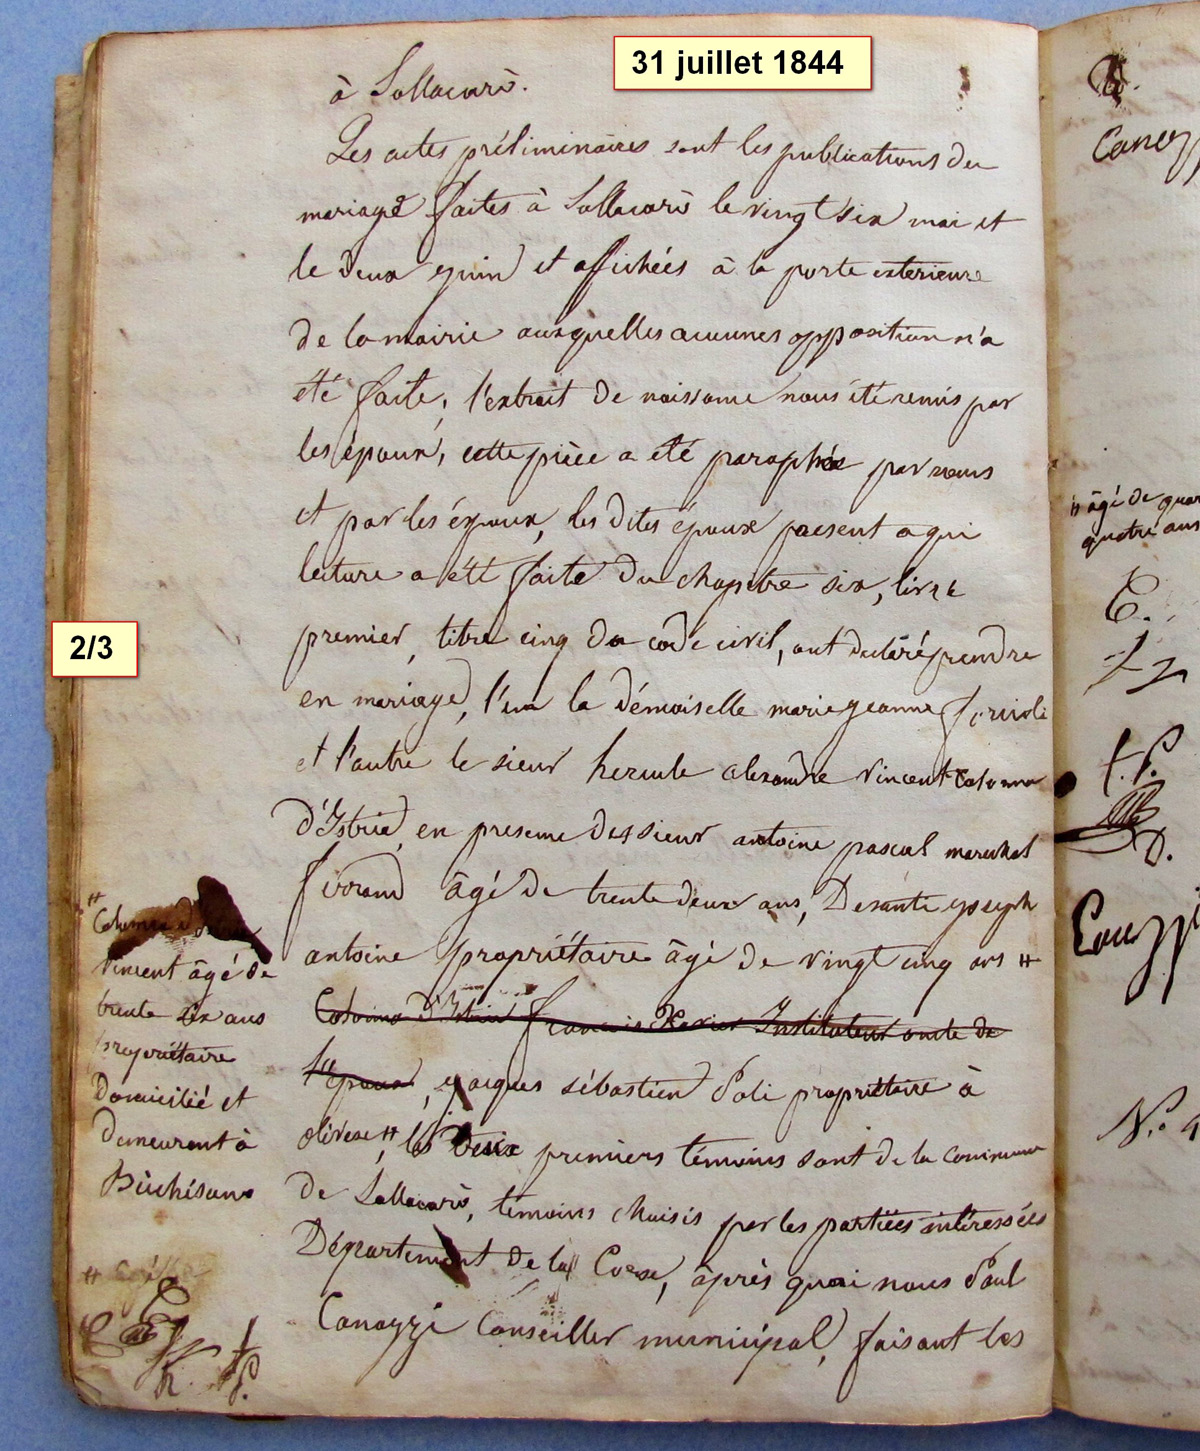 31 juillet 1844
à Sollacarò.
Les actes préliminaires sont les publications du
mariage faites à Sollacarò le vingt six mai et
le deux guin et affichées à la porte exterieure
de la mairie auxquelles aucunes opposition n'a
été faite, l'extrait de naissance nous été remis par
les époux, cette pièce a été paraphée par nous
et par les époux, les dites époux present a qui
lecture a été faite du chapitre six, livre
premier, titre cinq du code civil, ont declaré prendre
en mariage, l'un la démoiselle marie geanne
et l'autre le sieur hercule alexandre vincent Colonna
d'Istria, en presence des sieur antoine pascal marechal
âgé de trente deux ans, Desanti goseph
antoine propriétaire âgé de vingt cinq ans #
Colonna d'Istria françois Xavier Instituteur oncle de
l'époux, gacques sébastien Poli propriétaire à
olivese #, les deux premiers témoins sont de la commune
de Sollacarò, témoins choisis par les partiées intéressées
Département de la Corse, âprès quoi nous Paul
Canazzi Conseiller municipal, faisant les
2/3
# Colonna d'Istria
vincent âgé de
trente six ans
propriétaire
Domicilié et
demeurant à
Bicchisano
#
C.
P.
Canazzi
# âgé de quar
quatre ans
C.
f.P.
D.
Canazzi
N.° 4